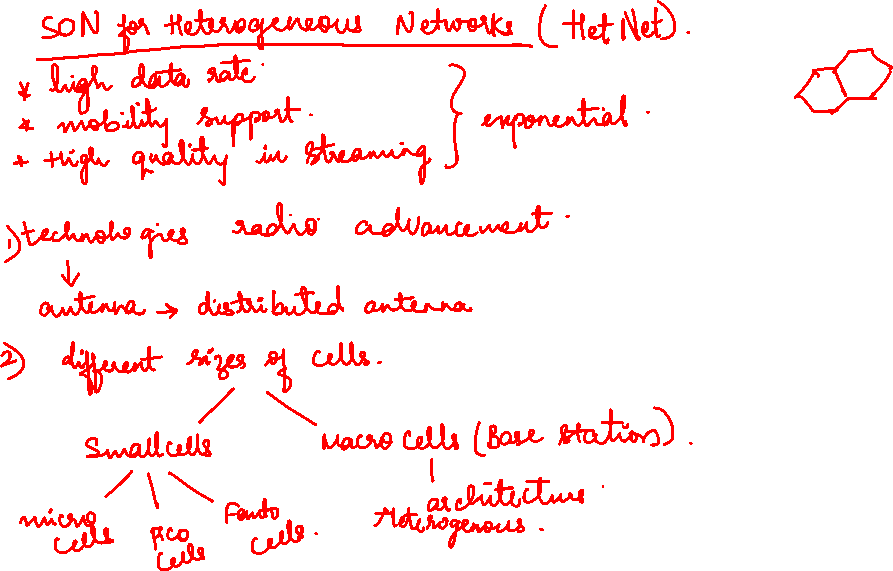 SON for Heterogeneous Networks (HetNet).
* high data rate.
* mobility support.
* High quality in streaming
exponential.
1) technologies radio advancement.
↓
antenna → distributed antenna
2) different sizes of cells.
Small cells
Macro cells (Base station).
micro cells
Pico cells
Femto cells.
architecture
Heterogenous.